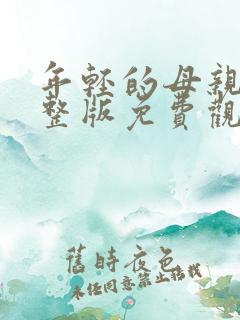 年轻的母親
整版免費觀
舊時夜色
未经同意禁止搭载